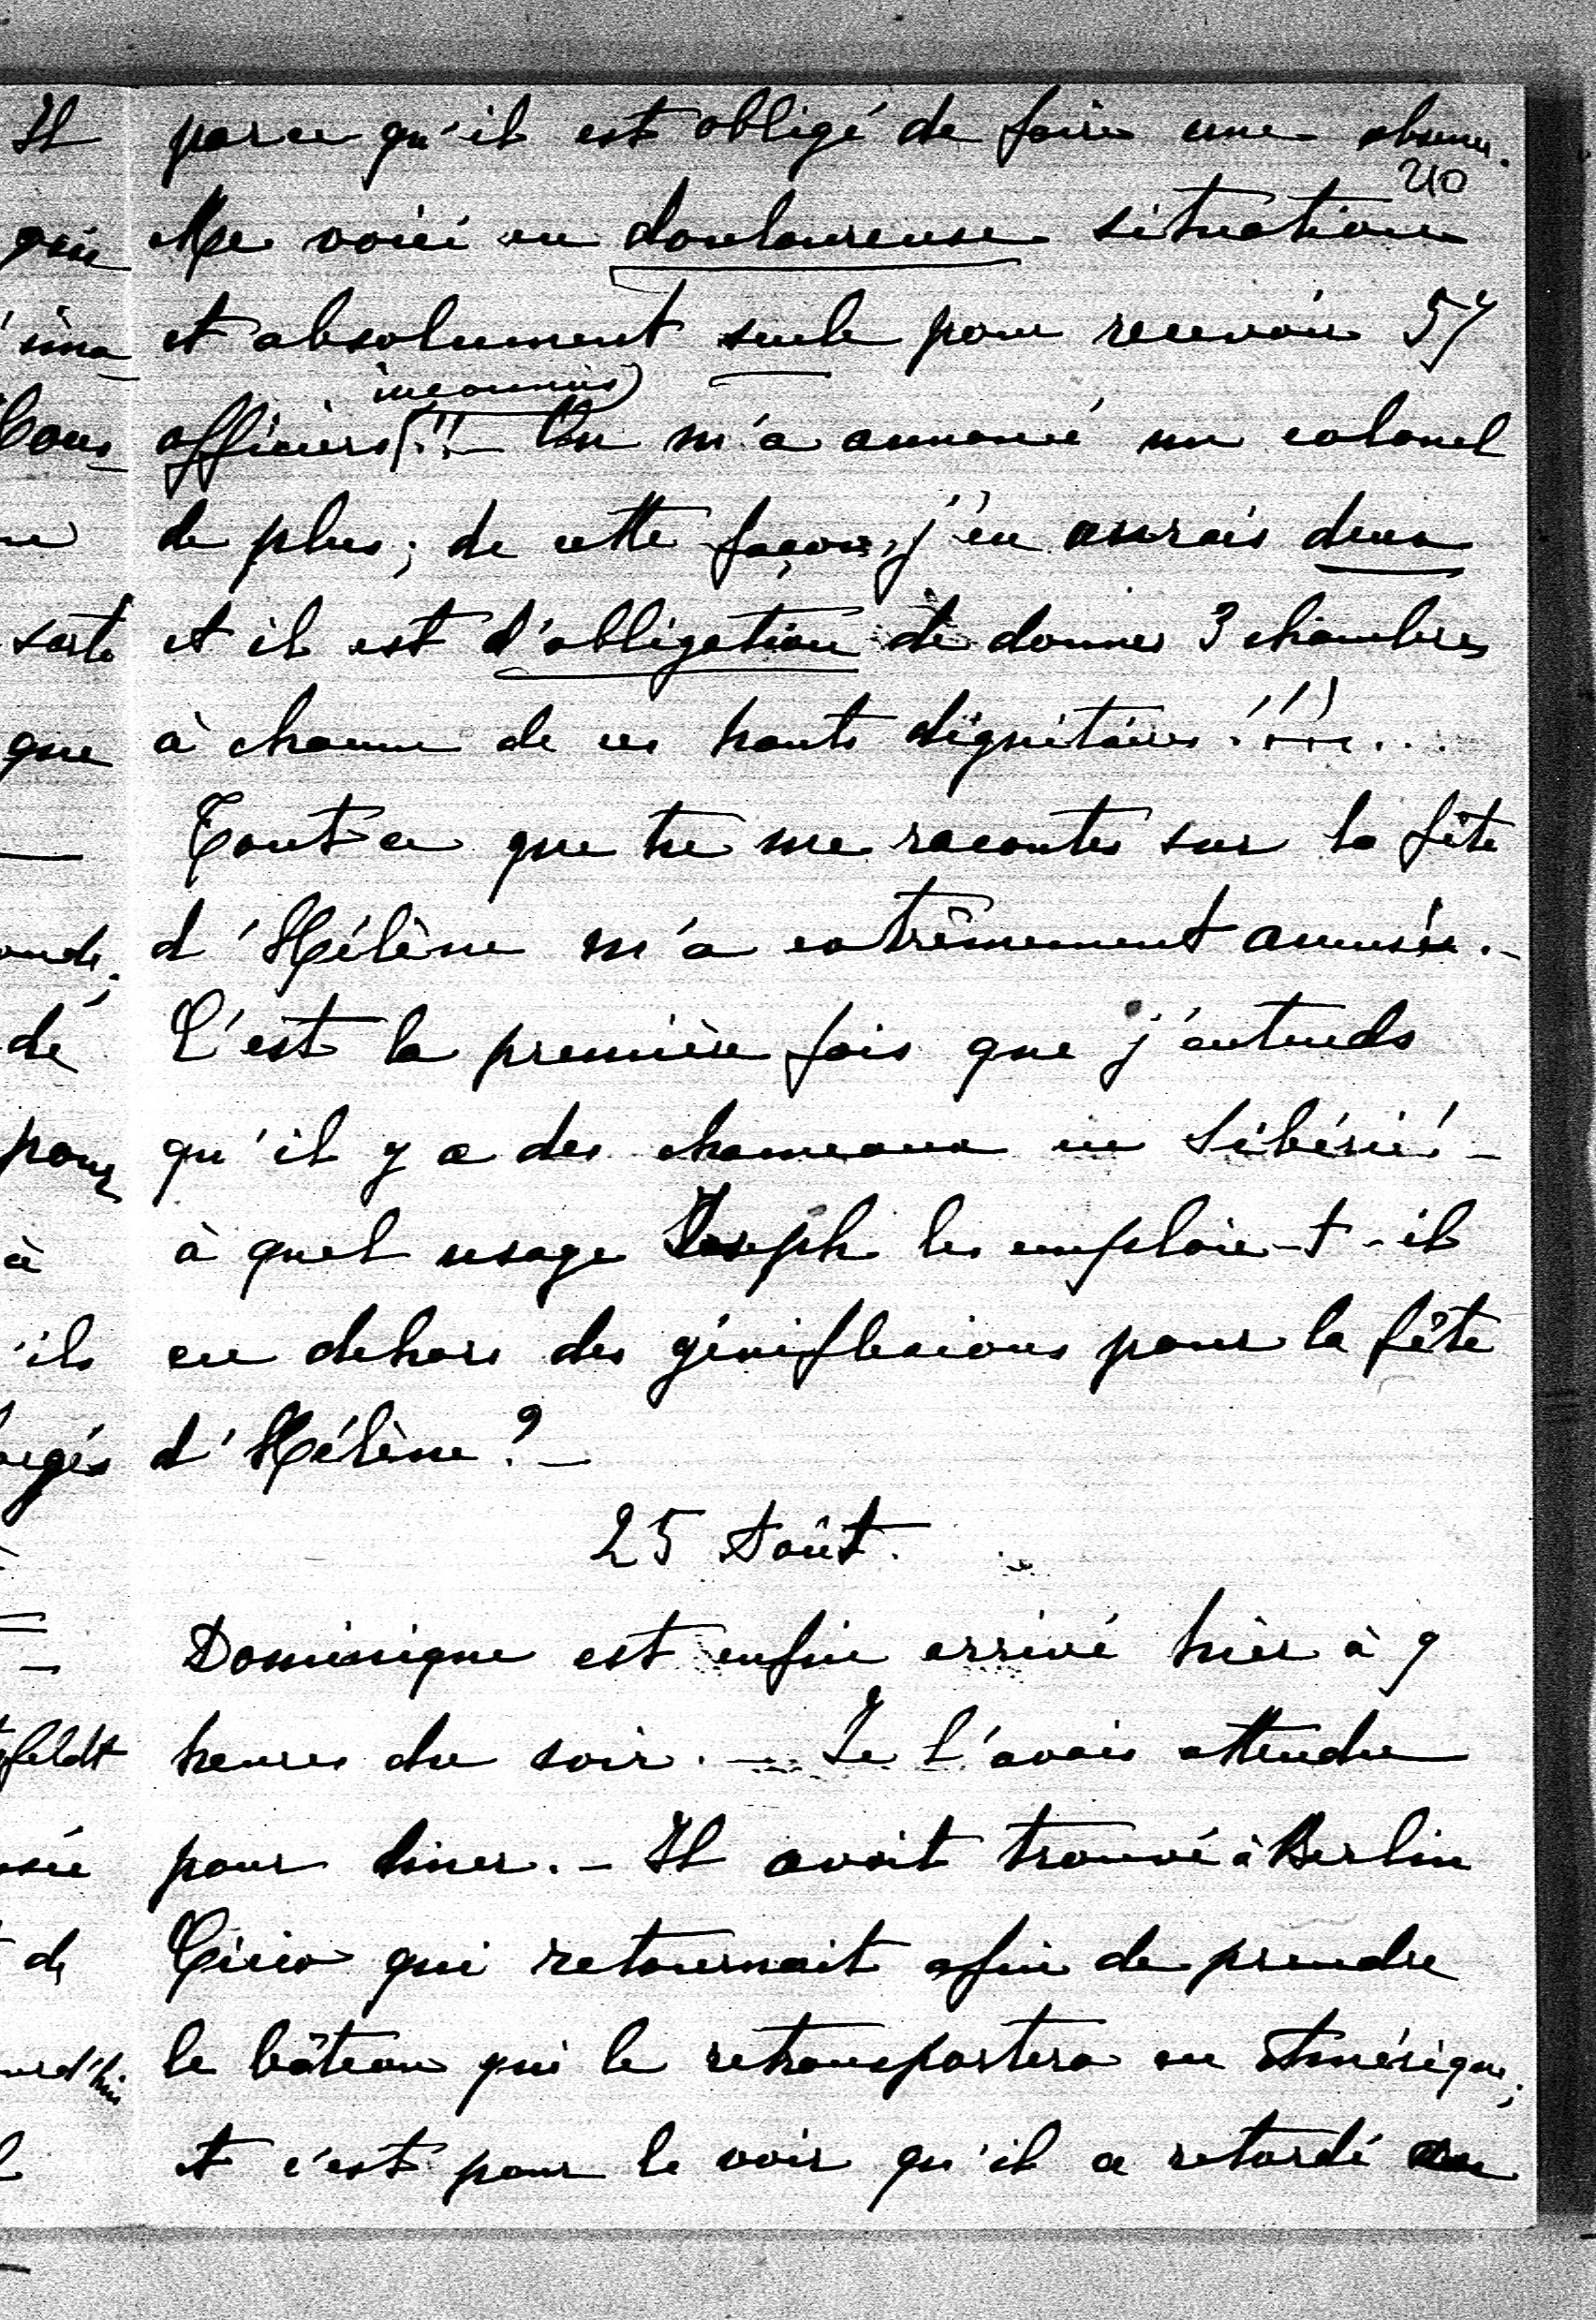 parce qu'il est obligé de faire une absence.
40
Me voici en douloureuse situation
et absolument seule pour recevoir 57
inconnus
officiers!! — On m'a annoncé un colonel
de plus; de cette façon, j'en aurais deux
et il est d'obligation de donner 3 chambres
à chacun de ces hauts dignitaires!!!...
Tout ce que tu me racontes sur la fête
d'Hélène m'a extrêmement amusée. —
C'est la première fois que j'entends
qu'il y a des chameaux en Sibérie! —
à quel usage Joseph les emploie-t-il
en dehors des génuflexions pour la fête
d'Hélène? —
25 Août.
Dominique est enfin arrivé hier à 9
heures du soir. — Je l'avais attendu
pour dîner. — Il avait trouvé à Berlin
qui retournait afin de prendre
le bâteau qui le retransportera en Amérique;
et c'est pour le voir qu'il a retardé